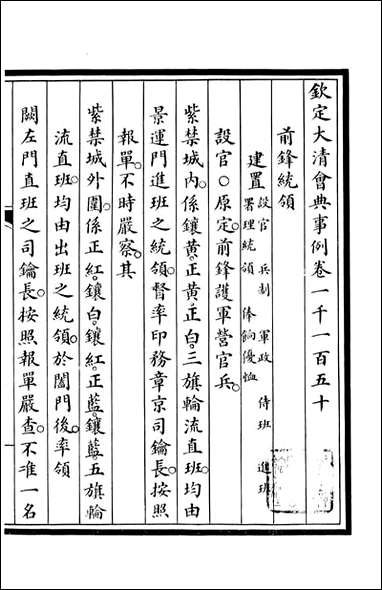 欽定大清會典事例卷一千一百五十
前鋒統領
建置
設官 兵制 軍政 侍班 進班
署理統領 俸餉優恤
設官○原定前鋒護軍營官兵。
紫禁城內。係鑲黃。正黃。正白。三旗輪流直班。均由
景運門進班之統領。督率印務章京司鑰長。按照
報單。不時嚴察。其
紫禁城外圍。係正紅。鑲白。鑲紅。正藍。鑲藍五旗輪
流直班。均由出班之統領。於闔門後。率領
闕左門直班之司鑰長。按照報單嚴查。不准一名